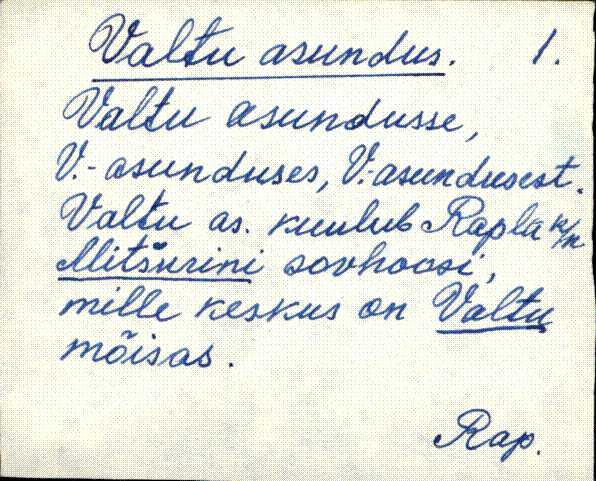 Valtu asundus. 1.
Valtu asundusse,
V.-asunduses, V.-asundusest.
Valtu as. kuulub Rapla k/n
Mitšurini sovhoosi,
mille keskus on Valtu
mõisas.
Rap.